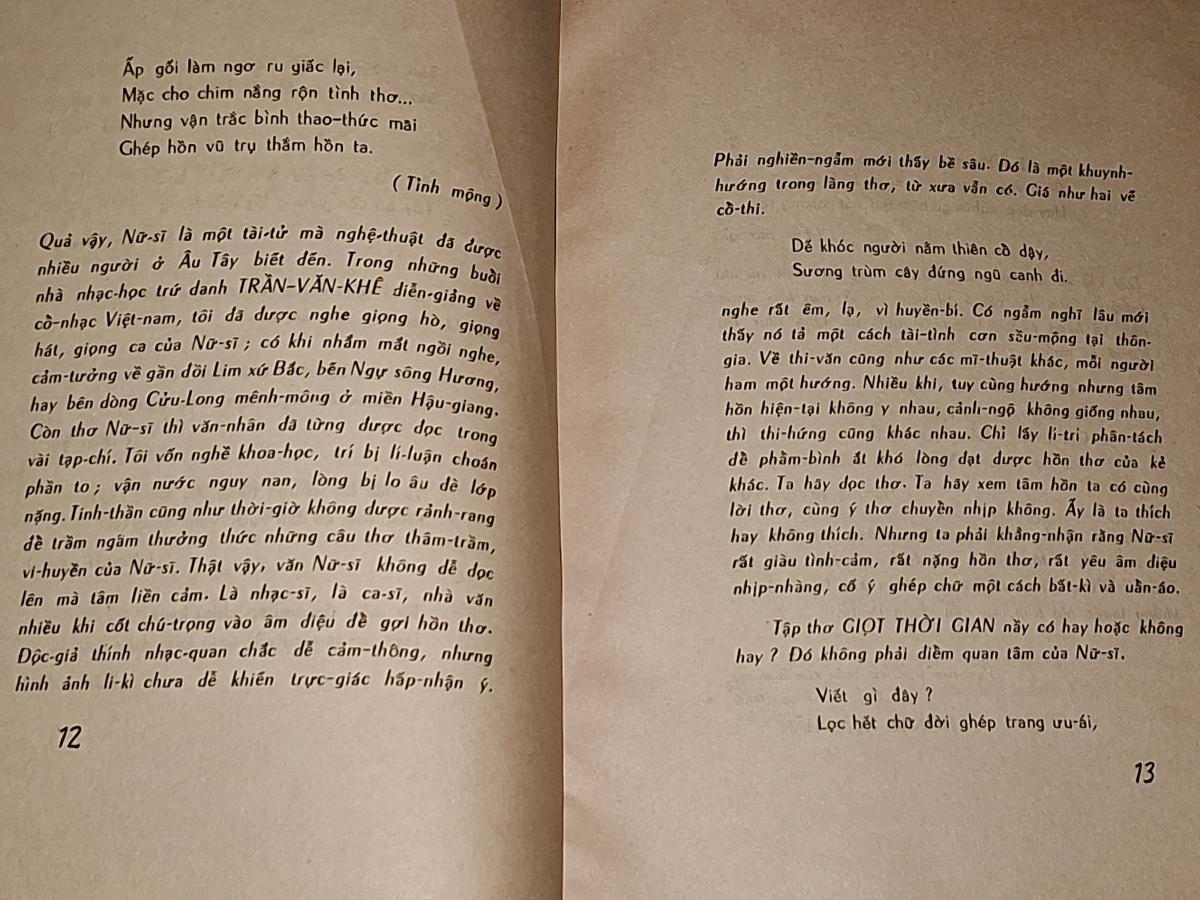 Ấp gối làm ngơ ru giấc lại,
Mặc cho chim nắng rộn tình thơ...
Nhưng vận trắc bình thao-thức mãi
Ghép hồn vũ trụ thắm hồn ta.
(Tỉnh mộng)
Quả vậy, Nữ-sĩ là một tài-tử mà nghệ-thuật đã được
nhiều người ở Âu Tây biết đến. Trong những buổi
nhà nhạc-học trứ danh TRẦN-VĂN-KHÊ diễn-giảng về
cổ-nhạc Việt-nam, tôi đã được nghe giọng hò, giọng
hát, giọng ca của Nữ-sĩ ; có khi nhắm mắt ngồi nghe,
cảm-tưởng về gần đồi Lim xứ Bắc, bến Ngự sông Hương,
hay bên dòng Cửu-Long mênh-mông ở miền Hậu-giang.
Còn thơ Nữ-sĩ thì văn-nhân đã từng được đọc trong
vài tạp-chí. Tôi vốn nghề khoa-học, trí bị lí-luận choán
phần to ; vận nước nguy nan, lòng bị lo âu đè lớp
nặng. Tinh-thần cũng như thời-giờ không được rảnh-rang
để trầm ngâm thưởng thức những câu thơ thâm-trầm,
vi-huyền của Nữ-sĩ. Thật vậy, văn Nữ-sĩ không dễ đọc
lên mà tâm liền cảm. Là nhạc-sĩ, là ca-sĩ, nhà văn
nhiều khi cốt chú-trọng vào âm điệu để gợi hồn thơ.
Độc-giả thính nhạc-quan chắc dễ cảm-thông, nhưng
hình ảnh li-kì chưa dễ khiến trực-giác hấp-nhận ý.
12
Phải nghiền-ngẫm mới thấy bề sâu. Đó là một khuynh-
hướng trong làng thơ, từ xưa vẫn có. Giá như hai vế
cổ-thi.
Dế khóc người nằm thiên cổ dậy,
Sương trùm cây đứng ngũ canh đi.
nghe rất êm, lạ, vì huyền-bí. Có ngẫm nghĩ lâu mới
thấy nó tả một cách tài-tình cơn sầu-mộng tại thôn-
gia. Về thi-văn cũng như các mĩ-thuật khác, mỗi người
ham một hướng. Nhiều khi, tuy cùng hướng nhưng tâm
hồn hiện-tại không y nhau, cảnh-ngộ không giống nhau,
thì thi-hứng cũng khác nhau. Chỉ lấy lí-trí phân-tách
để phẩm-bình ắt khó lòng đạt được hồn thơ của kẻ
khác. Ta hãy đọc thơ. Ta hãy xem tâm hồn ta có cùng
lời thơ, cùng ý thơ chuyển nhịp không. Ấy là ta thích
hay không thích. Nhưng ta phải khẳng-nhận rằng Nữ-sĩ
rất giàu tình-cảm, rất nặng hồn thơ, rất yêu âm điệu
nhịp-nhàng, cố ý ghép chữ một cách bất-kì và uẩn-áo.
Tập thơ GIỌT THỜI GIAN nầy có hay hoặc không
hay ? Đó không phải điểm quan tâm của Nữ-sĩ.
Viết gì đây ?
Lọc hết chữ đời ghép trang ưu-ái,
13